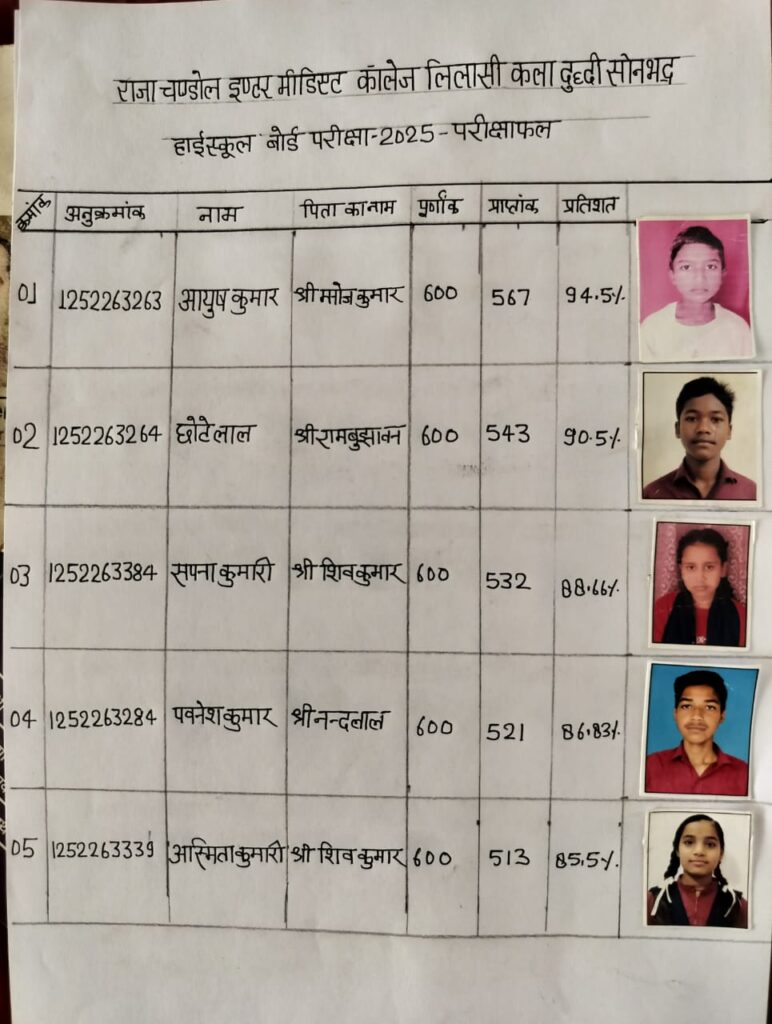 राजा चण्डोल इण्टर मीडिएट कॉलेज लिलासी कला दुद्धी सोनभद्र
हाईस्कूल बोर्ड परीक्षा-2025-परीक्षाफल
क्रमांक अनुक्रमांक नाम पिता का नाम पूर्णांक प्राप्तांक प्रतिशत
01 1252263263 आयुष कुमार श्री मनोज कुमार 600 567 94.5%
02 1252263264 छोटेलाल श्री रामबुझावन 600 543 90.5%
03 1252263384 सपना कुमारी श्री शिव कुमार 600 532 88.66%
04 1252263284 पवनेश कुमार श्री नन्दलाल 600 521 86.83%
05 1252263339 अस्मिता कुमारी श्री शिव कुमार 600 513 85.5%